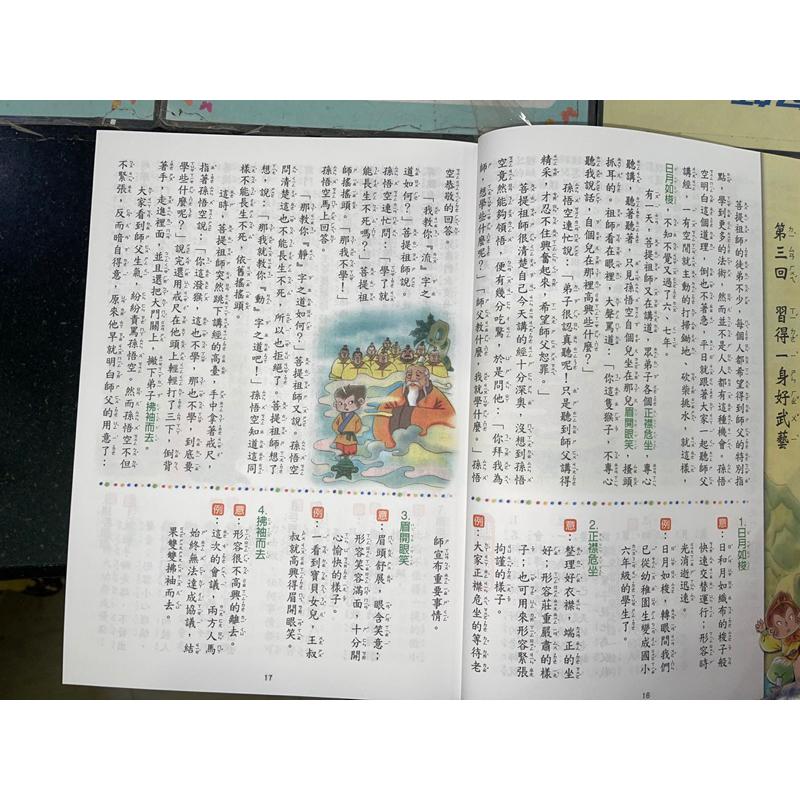 第三回 習得一身好武藝
菩提祖師的徒弟不少，每個人都希望得到師父的特別指
點，學到更多的法術，然而並不是人人都有這種機會。孫悟
空明白這個道理，倒也不著急，平日就跟著大家一起聽師父
講經，一有空閒就主動的打掃鋤地、砍柴挑水，就這樣，
日月如梭，不知不覺又過了六、七年。
有一天，菩提祖師又在講道，眾弟子各個正襟危坐，專心
聽講，聽著聽著，只見孫悟空自個兒坐在那兒眉開眼笑，搔頭
抓耳的。祖師看在眼裡，大聲罵道：「你這隻猴子，不專心
聽我說話，自個兒在那裡高興些什麼？」
孫悟空連忙說：「弟子很認真聽呢！只是聽到師父講得
精采，才忍不住興奮起來，希望師父恕罪。」
菩提祖師很清楚自己今天講的經十分深奧，沒想到孫悟
空竟然能夠領悟，便有幾分吃驚，於是問他：「你拜我為
師，想學些什麼呢？」「師父教我什麼，我就學什麼。」孫悟
1.日月如梭
意：日和月如織布的梭子般
快速交替運行；形容時
光消逝迅速。
例：日月如梭，轉眼間我們
已從幼稚園生變成國小
六年級的學生了。
2.正襟危坐
意：整理好衣襟，端正的坐
好；形容莊重嚴肅的樣
子；也可用來形容緊張
拘謹的樣子。
例：大家正襟危坐的等待老
16
空恭敬的回答。
「我教你『流』字之
道如何？」菩提祖師說。
孫悟空連忙問：「學了就
能長生不死嗎？」菩提祖
師搖搖頭。「那我不學！」
孫悟空馬上回答。
「那教你『靜』字之道如何？」菩提祖師又說。孫悟空
問清楚這也不能長生不死，所以也拒絕了。菩提祖師想了
想，說：「那我就教你『動』字之道吧！」孫悟空知道這同
樣不能長生不死，依舊搖搖頭。
這時，菩提祖師突然跳下講經的高臺，手中拿著戒尺，
指著孫悟空說：「你這潑猴，這也不學，那也不學，到底要
學些什麼呢？」說完還用戒尺在他頭上輕輕打了三下，倒背
著手，走進裡面，並且還把大門關上，撇下弟子拂袖而去。
大家看到師父生氣，紛紛責罵孫悟空。然而孫悟空不但
不緊張，反而暗自得意，原來他早就明白師父的用意了：
師宣布重要事情。
3.眉開眼笑
意：眉頭舒展，眼含笑意；
形容笑容滿面，十分開
心愉快的樣子。
例：一看到寶貝女兒，王叔
叔就高興得眉開眼笑。
4.拂袖而去
意：形容很不高興的離去。
例：這次的會議，兩方人馬
始終無法達成協議，結
果雙雙拂袖而去。
17